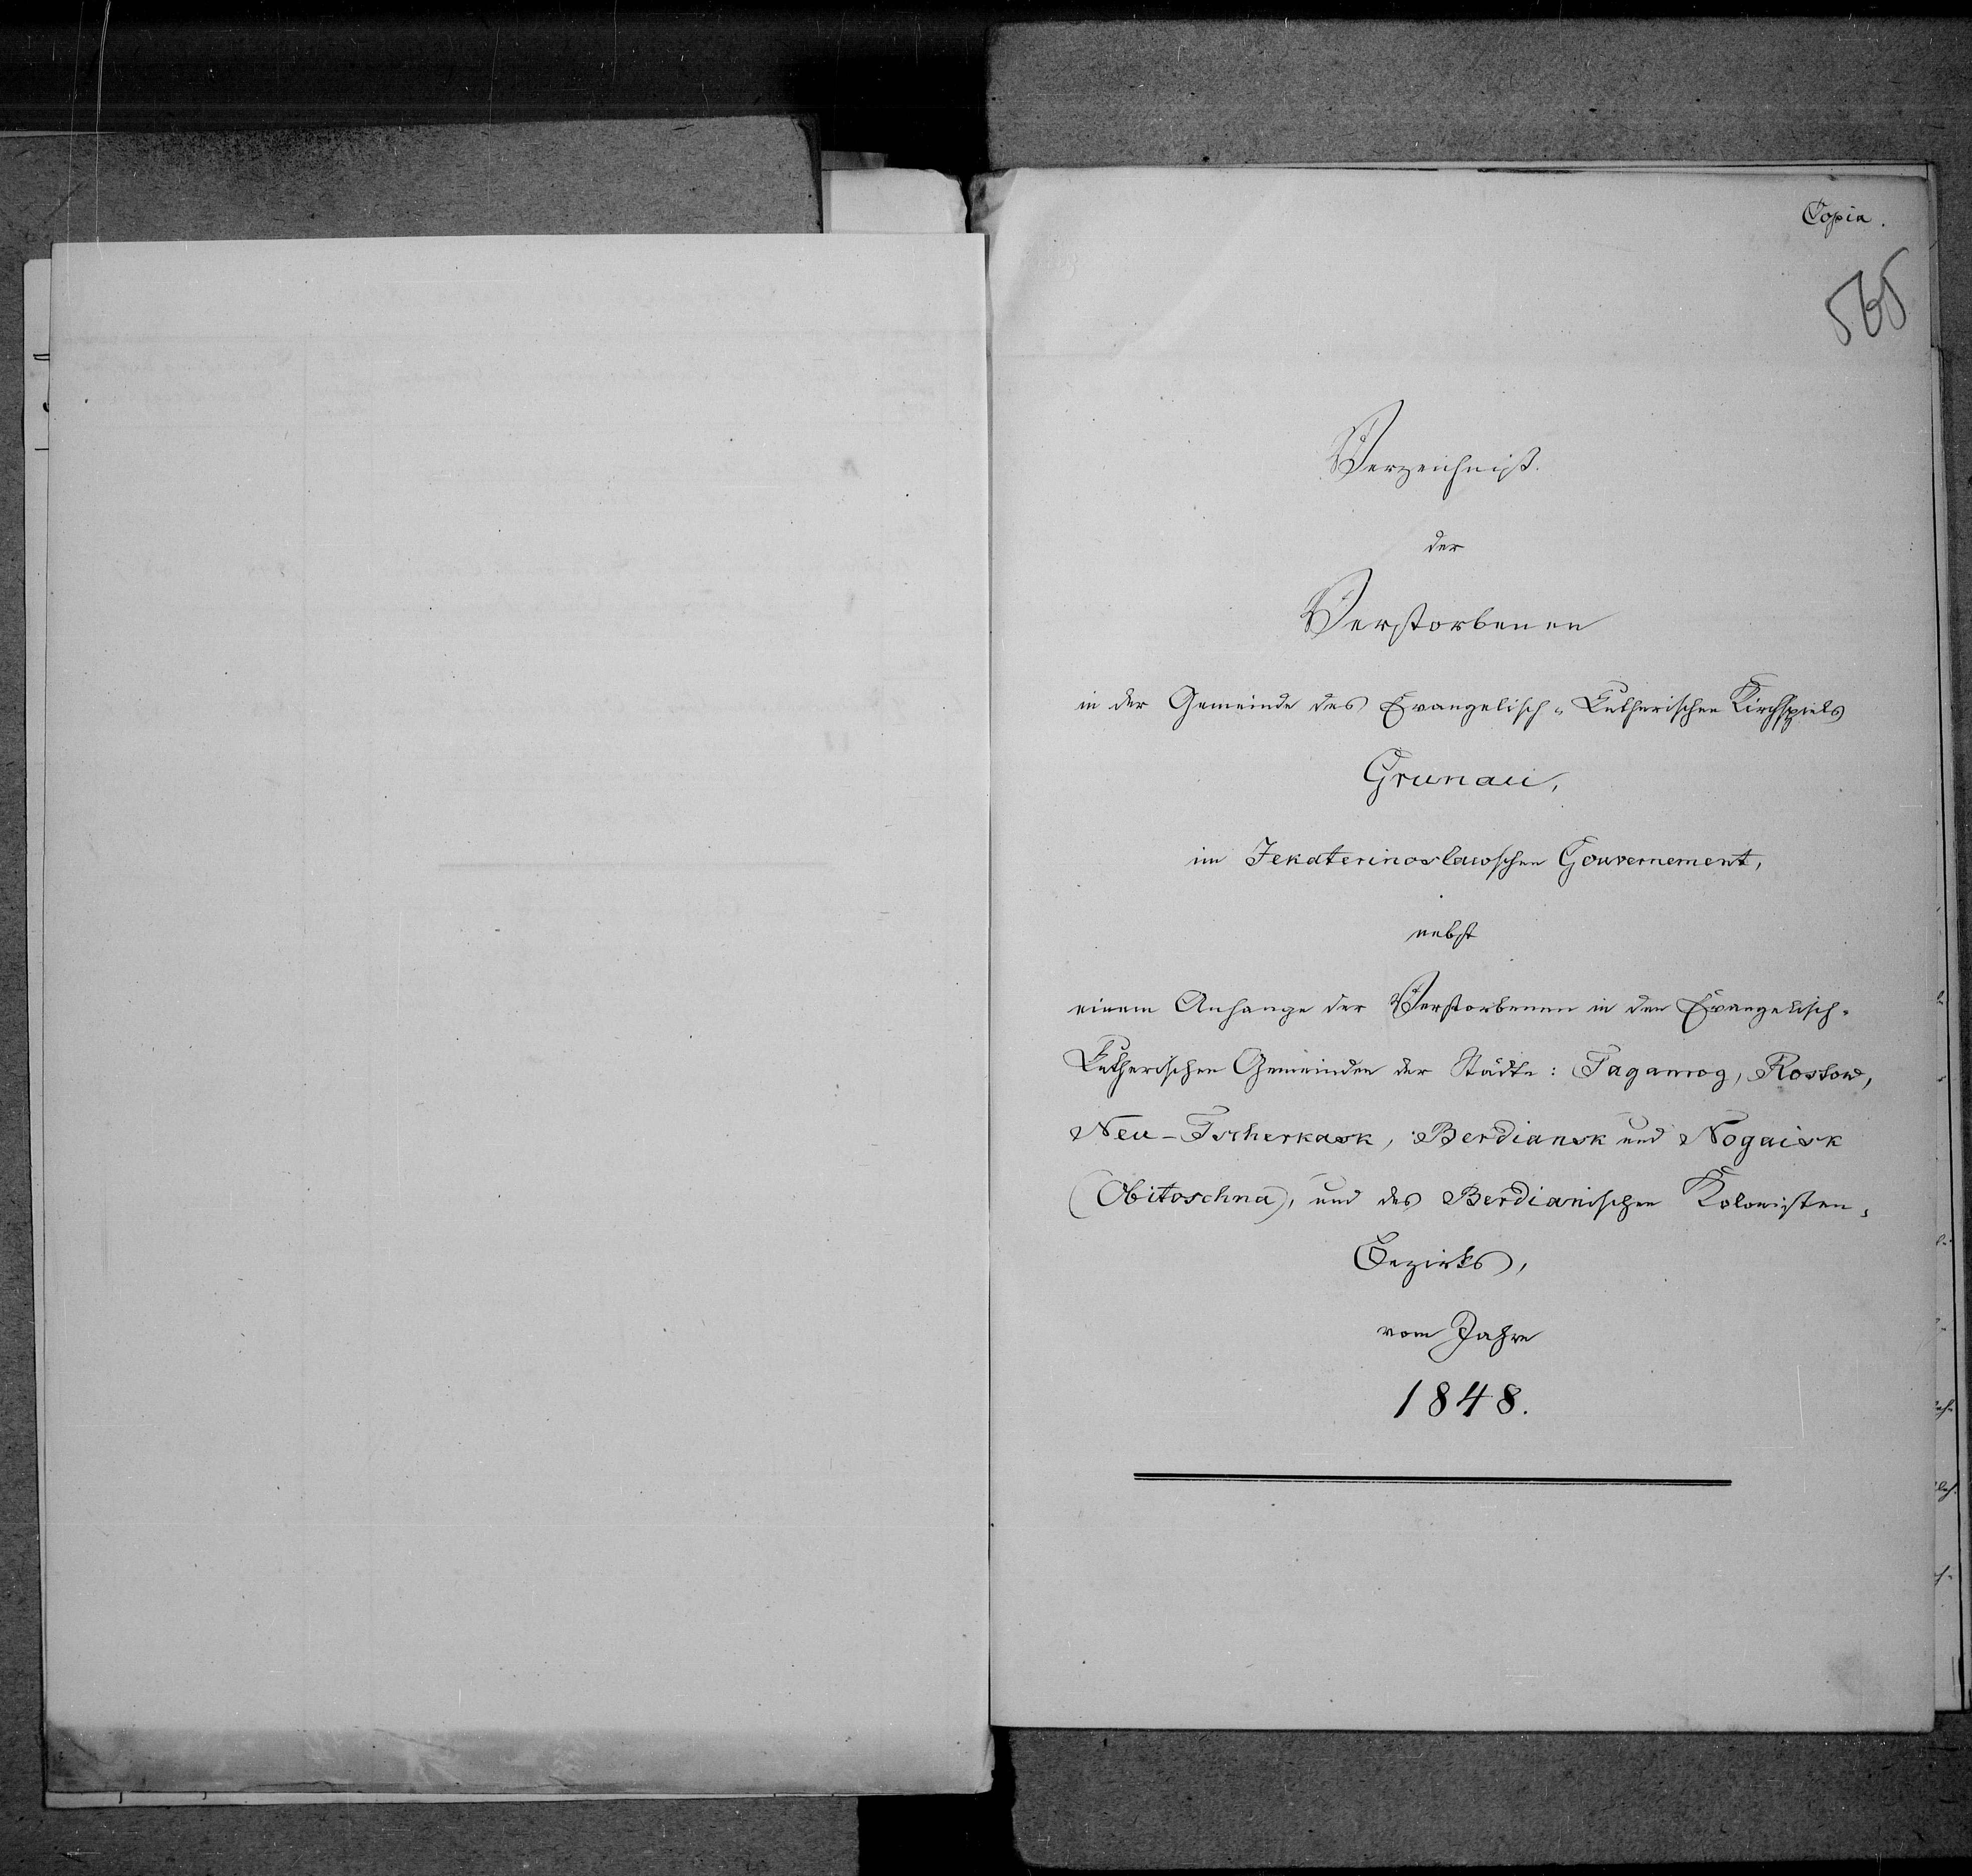 Copia.
565
Verzeichniß
der
Verstorbenen
in der Gemeinde des Evangelisch-Lutherischen Kirchspiels
Grunau,
im Jekaterinoslawschen Gouvernement,
nebst
einem Anhange der Verstorbenen in den Evangelisch-
Lutherischen Gemeinden der Städte: Taganrog, Rostow,
Neu-Tscherkask, Berdiansk und Nogaisk
(Obitoschna), und des Berdianischen Kolonisten-
Bezirks,
vom Jahre
1848.